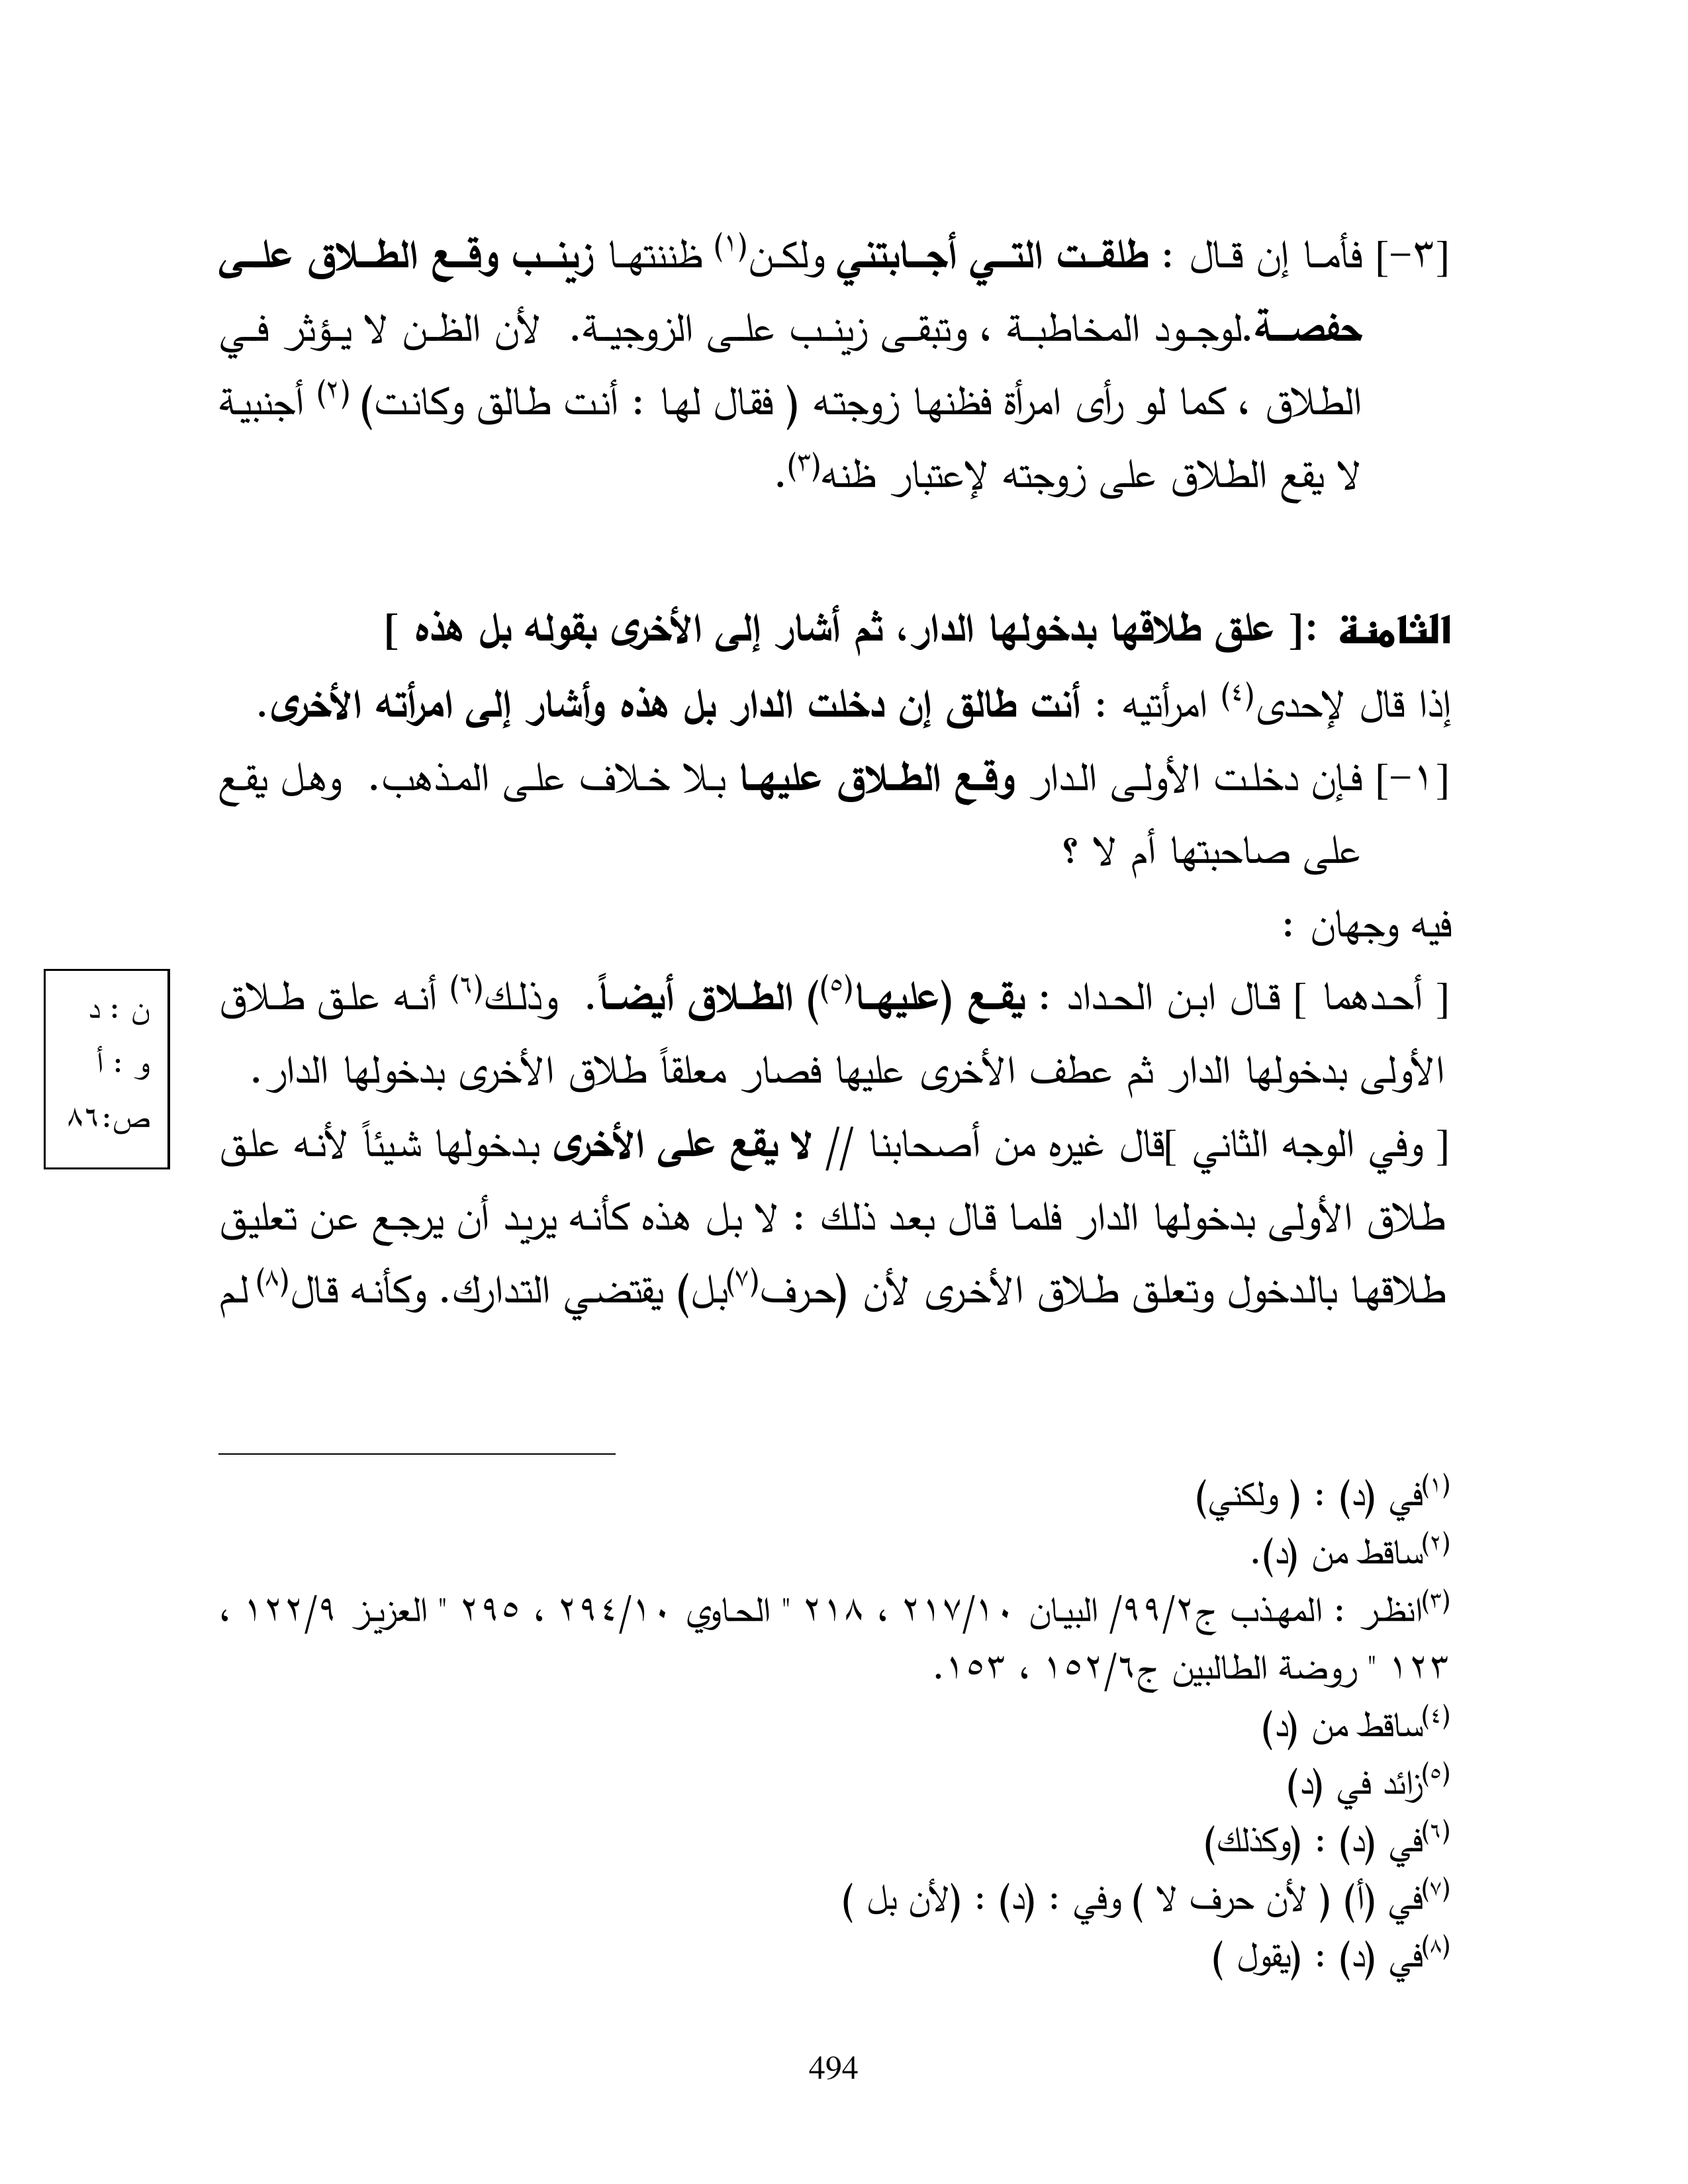 [٣-] فأما إن قال : طلقت التي أجابتني ولكن(١) ظننتها زينب وقع الطلاق على
حفصة.لوجود المخاطبة ، وتبقى زينب على الزوجية. لأن الظن لا يؤثر في
الطلاق ، كما لو رأى امرأة فظنها زوجته ( فقال لها : أنت طالق وكانت) (٢) أجنبية
لا يقع الطلاق على زوجته لإعتبار ظنه(٣).
الثامنة :[ علق طلاقها بدخولها الدار، ثم أشار إلى الأخرى بقوله بل هذه ]
إذا قال لإحدى(٤) امرأتيه : أنت طالق إن دخلت الدار بل هذه وأشار إلى امرأته الأخرى.
[١-] فإن دخلت الأولى الدار وقع الطلاق عليها بلا خلاف على المذهب. وهل يقع
على صاحبتها أم لا ؟
فيه وجهان :
[ أحدهما ] قال ابن الحداد : يقع (عليها(٥)) الطلاق أيضاً. وذلك(٦) أنه علق طلاق
الأولى بدخولها الدار ثم عطف الأخرى عليها فصار معلقاً طلاق الأخرى بدخولها الدار.
[ وفي الوجه الثاني ]قال غيره من أصحابنا // لا يقع على الأخرى بدخولها شيئاً لأنه علق
طلاق الأولى بدخولها الدار فلما قال بعد ذلك : لا بل هذه كأنه يريد أن يرجع عن تعليق
طلاقها بالدخول وتعلق طلاق الأخرى لأن (حرف(٧)بل) يقتضي التدارك. وكأنه قال(٨) لم
ن : د
و : أ
ص:٨٦
(١)في (د) : ( ولكني)
(٢)ساقط من (د).
(٣)انظر : المهذب ج٩٩/٢/ البيان ٢١٧/١٠ ، ٢١٨ " الحاوي ٢٩٤/١٠ ، ٢٩٥ " العزيز ١٢٢/٩ ،
١٢٣ " روضة الطالبين ج١٥٢/٦ ، ١٥٣.
(٤)ساقط من (د)
(٥)زائد في (د)
(٦)في (د) : (وكذلك)
(٧)في (أ) ( لأن حرف لا ) وفي : (د) : (لأن بل )
(٨)في (د) : (يقول )
494